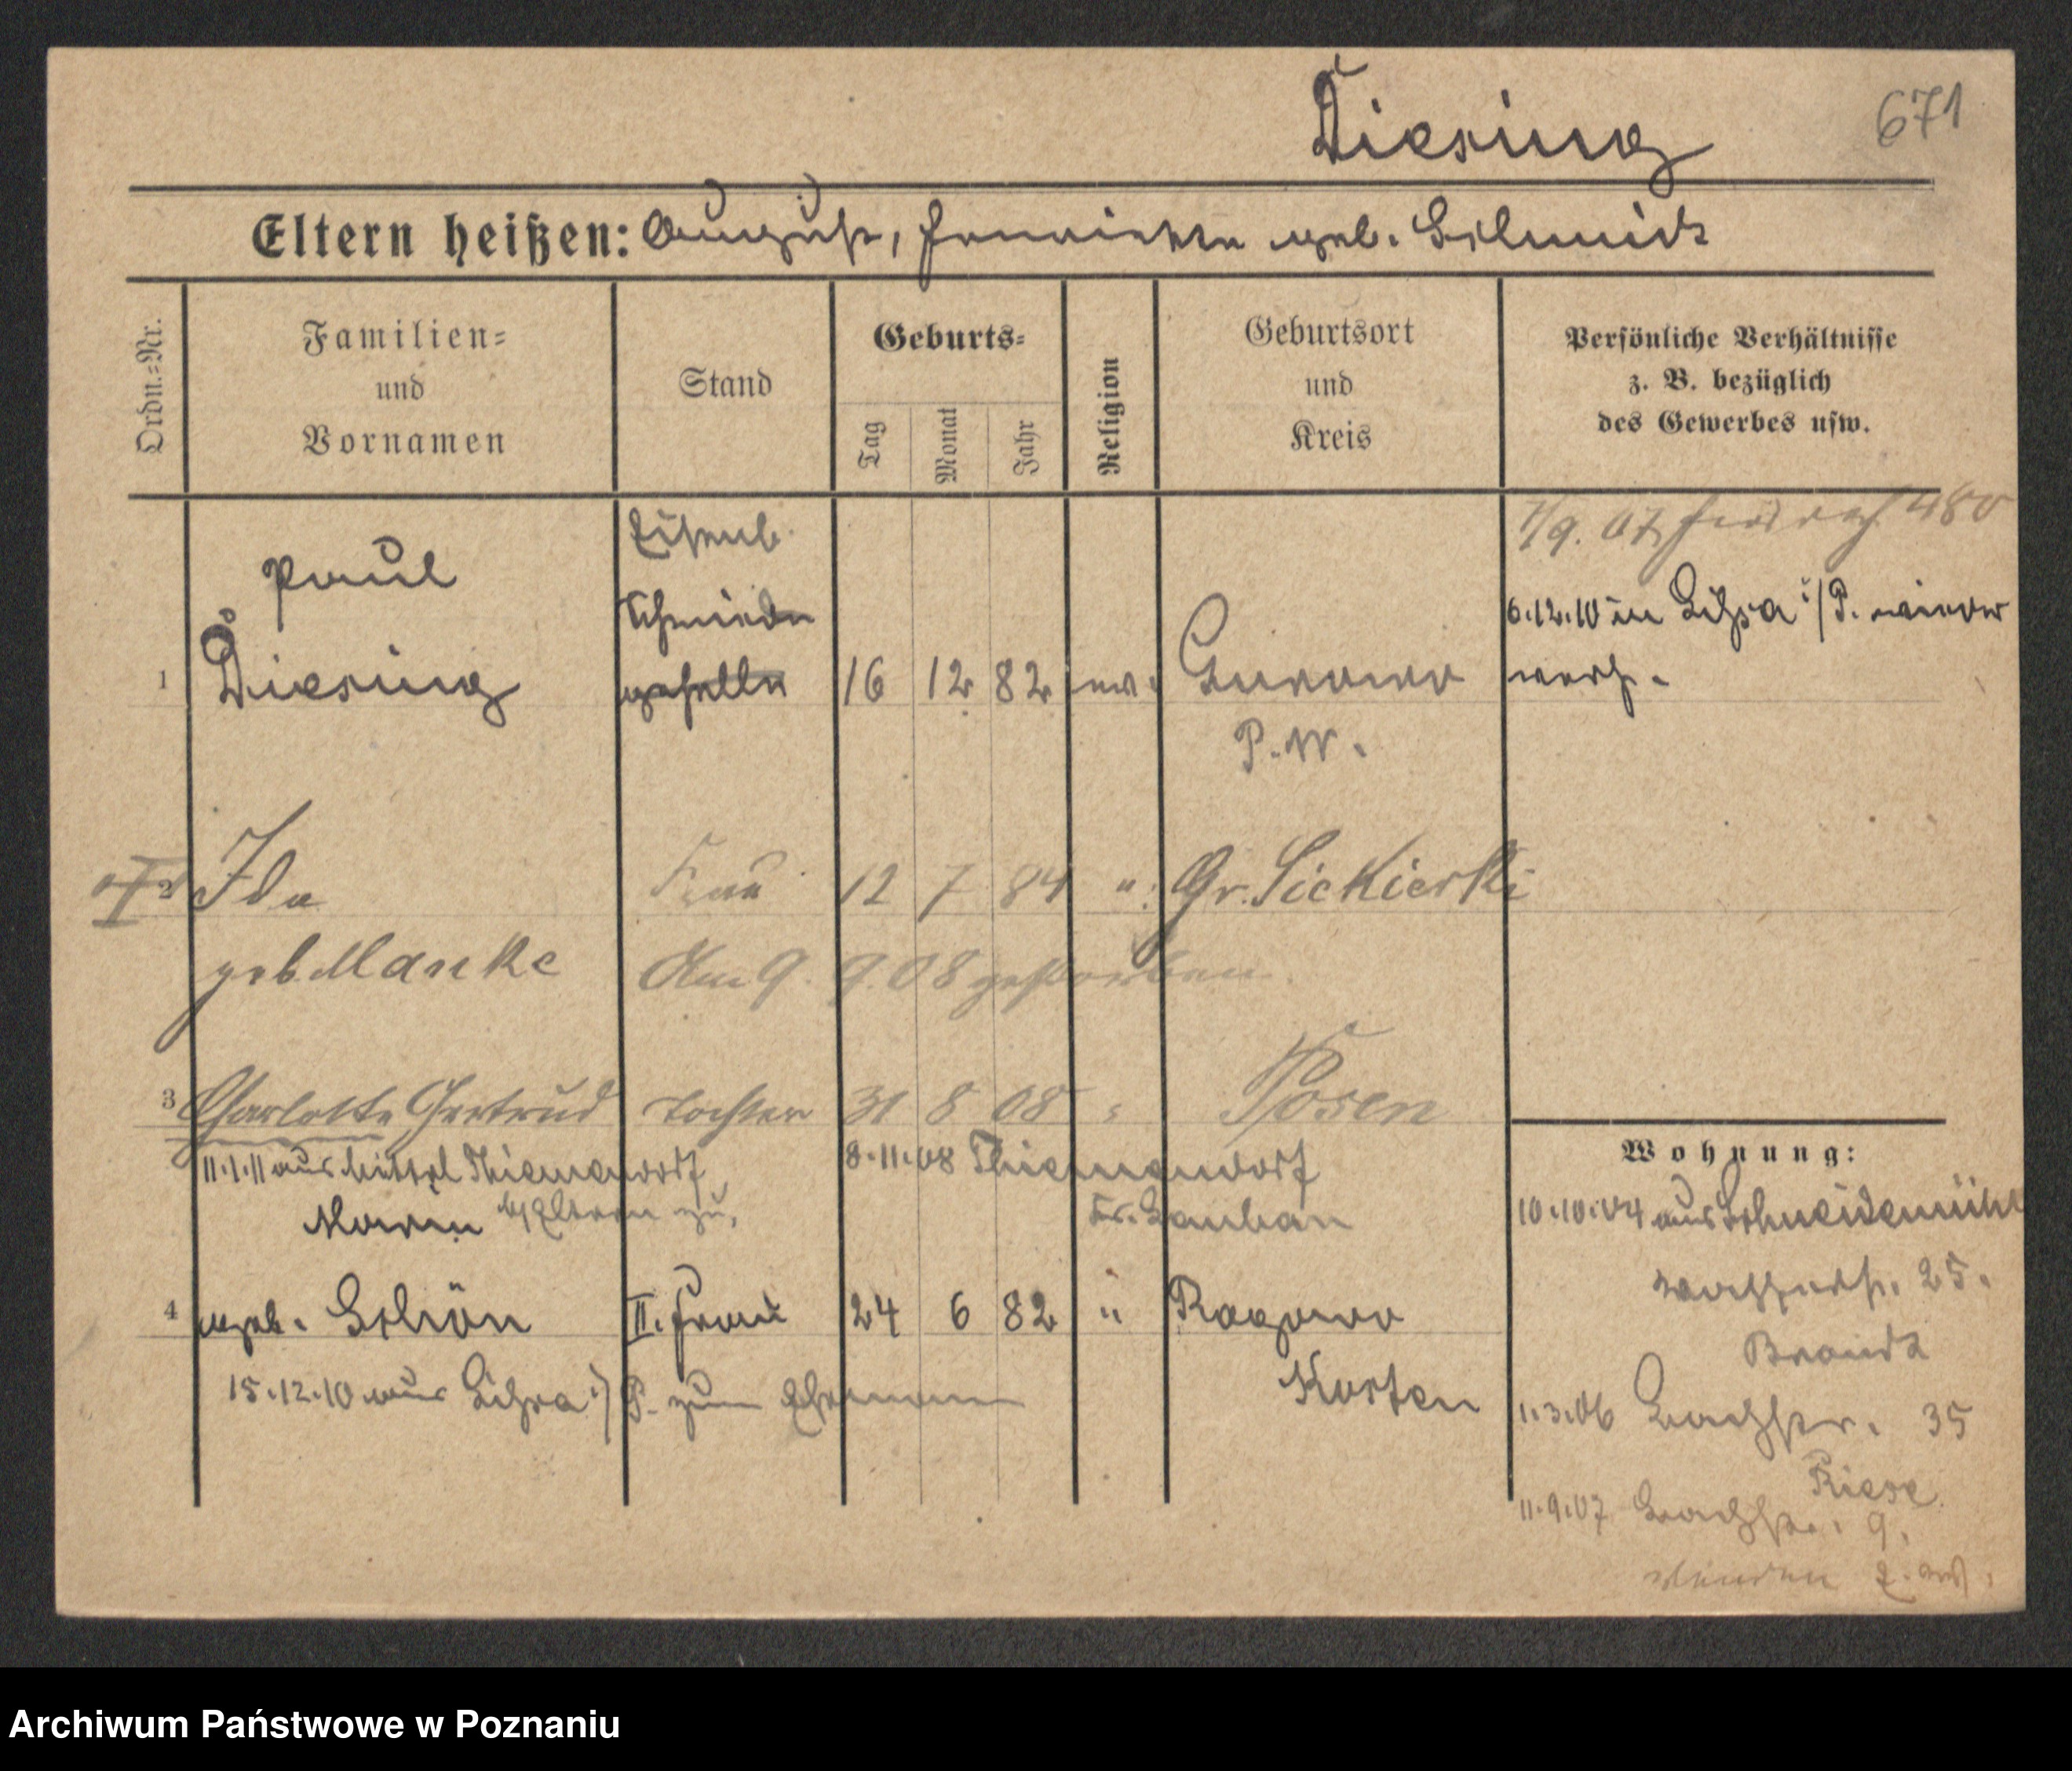 Diesing
671
Eltern heißen: August, Henriette geb. Schmidt
Ordn.-Nr.
Familien-
und
Vornamen
Stand
Geburts-
Tag
Monat
Jahr
Religion
Geburtsort
und
Kreis
Persönliche Verhältnisse
z. B. bezüglich
des Gewerbes usw.
Eisenb.
7/9. 07 480
Paul
Schmiede
6.12.10 in Lissa i/P. wieder
1 Diesing geselle 16 12 82 ev. Gurowo verh.
P. W.
2 Ida Frau 12 7 84 " Gr. Siekierki
geb. Manke Am 9. 9. 08 gestorben.
3 Charlotte Gertrud Tochter 31 8 08 " Posen
11.1.11 aus Mittel Thiemendorf 8.11.08 Thiemendorf
Kr. Lauban
Eltern zu.
4 geb. Schön II. Frau 24 6 82 " Rogowo
15.12.10 aus Lissa i/P. zum Ehemann Kosten
Wohnung:
10.10.04 aus Schneidemühl
25.
Brandt
1.3.06 35
Riese
11.9.07 9.